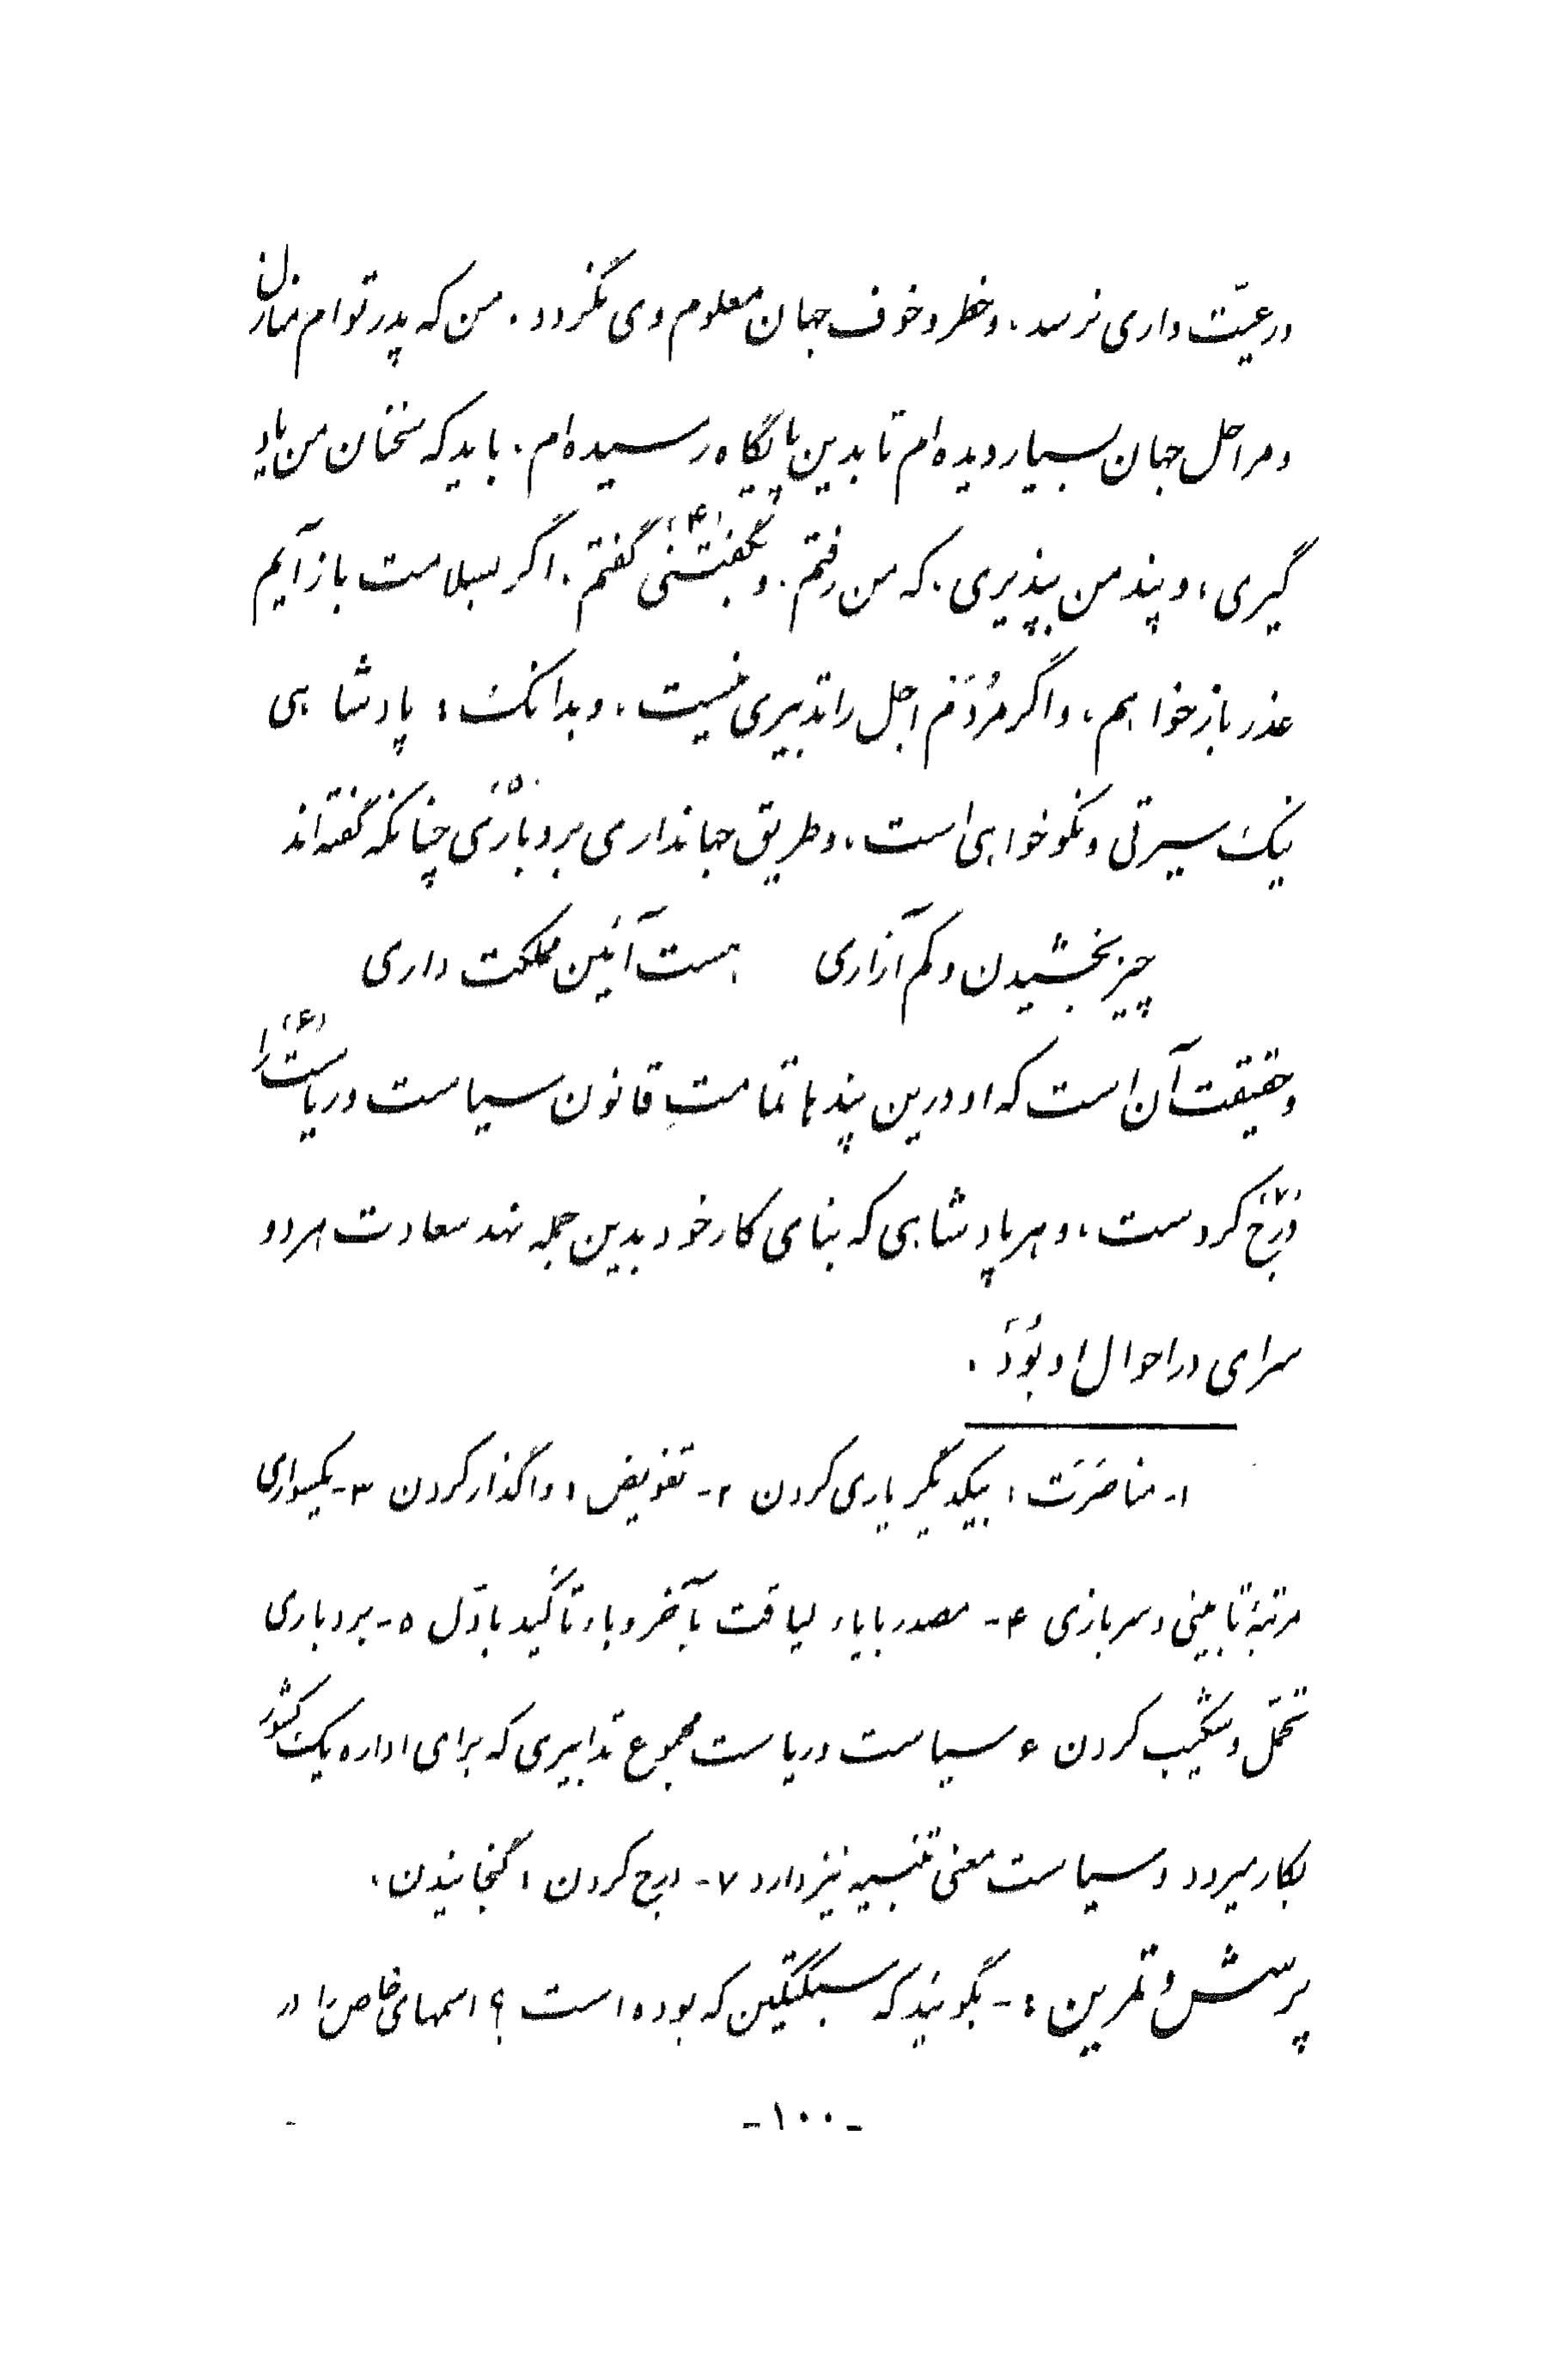 و رعیّت داری نرسد، و خطر و خوف جهان معلوم وی نگردد. من که پدر توام منازل
و مراحل جهان بسیار دیده‌ام تا بدین پایگاه رسیده‌ام. باید که سخنان من یاد
گیری، و پند من بپذیری، که من رفتم. و بگفتنی (۴) گفتم. اگر بسلامت باز آیم
عذر باز خواهم، و اگر مُردَم اجل را تدبیری نیست، و بدانک: پادشاهی
نیک سیرتی و نکوخواهی است، و طریق جهانداری بردباری (۵) چنانکه گفته‌اند
چیز بخشیدن و کم آزاری هست آئین مملکت داری
و حقیقت آن است که او درین پندها تمامتِ قانون سیاست و ریاست (۶) را
درج (۷) کردست، و هر پادشاهی که بنای کار خود بدین جمله نهد سعادت هر دو
سرای در احوال او بُوَد.
۱- مناصَرَت: بیکدیگر یاری کردن ۲- تفویض: واگذار کردن ۳- یکسواری
مرتبهٔ تابینی و سربازی ۴- مصدر با یاء لیاقت بآخر و باء تأکید باوّل ۵- بردباری
تحمّل و شکیب کردن ۶ سیاست و ریاست مجموع تدابیری که برای اداره یک کشور
بکار میرود و سیاست معنی تنبیه نیز دارد ۷- درج کردن: گنجانیدن.
پرسش و تمرین: - بگوئید که سبکتکین که بوده است؟ اسمهای خاص را در
-۱۰۰-